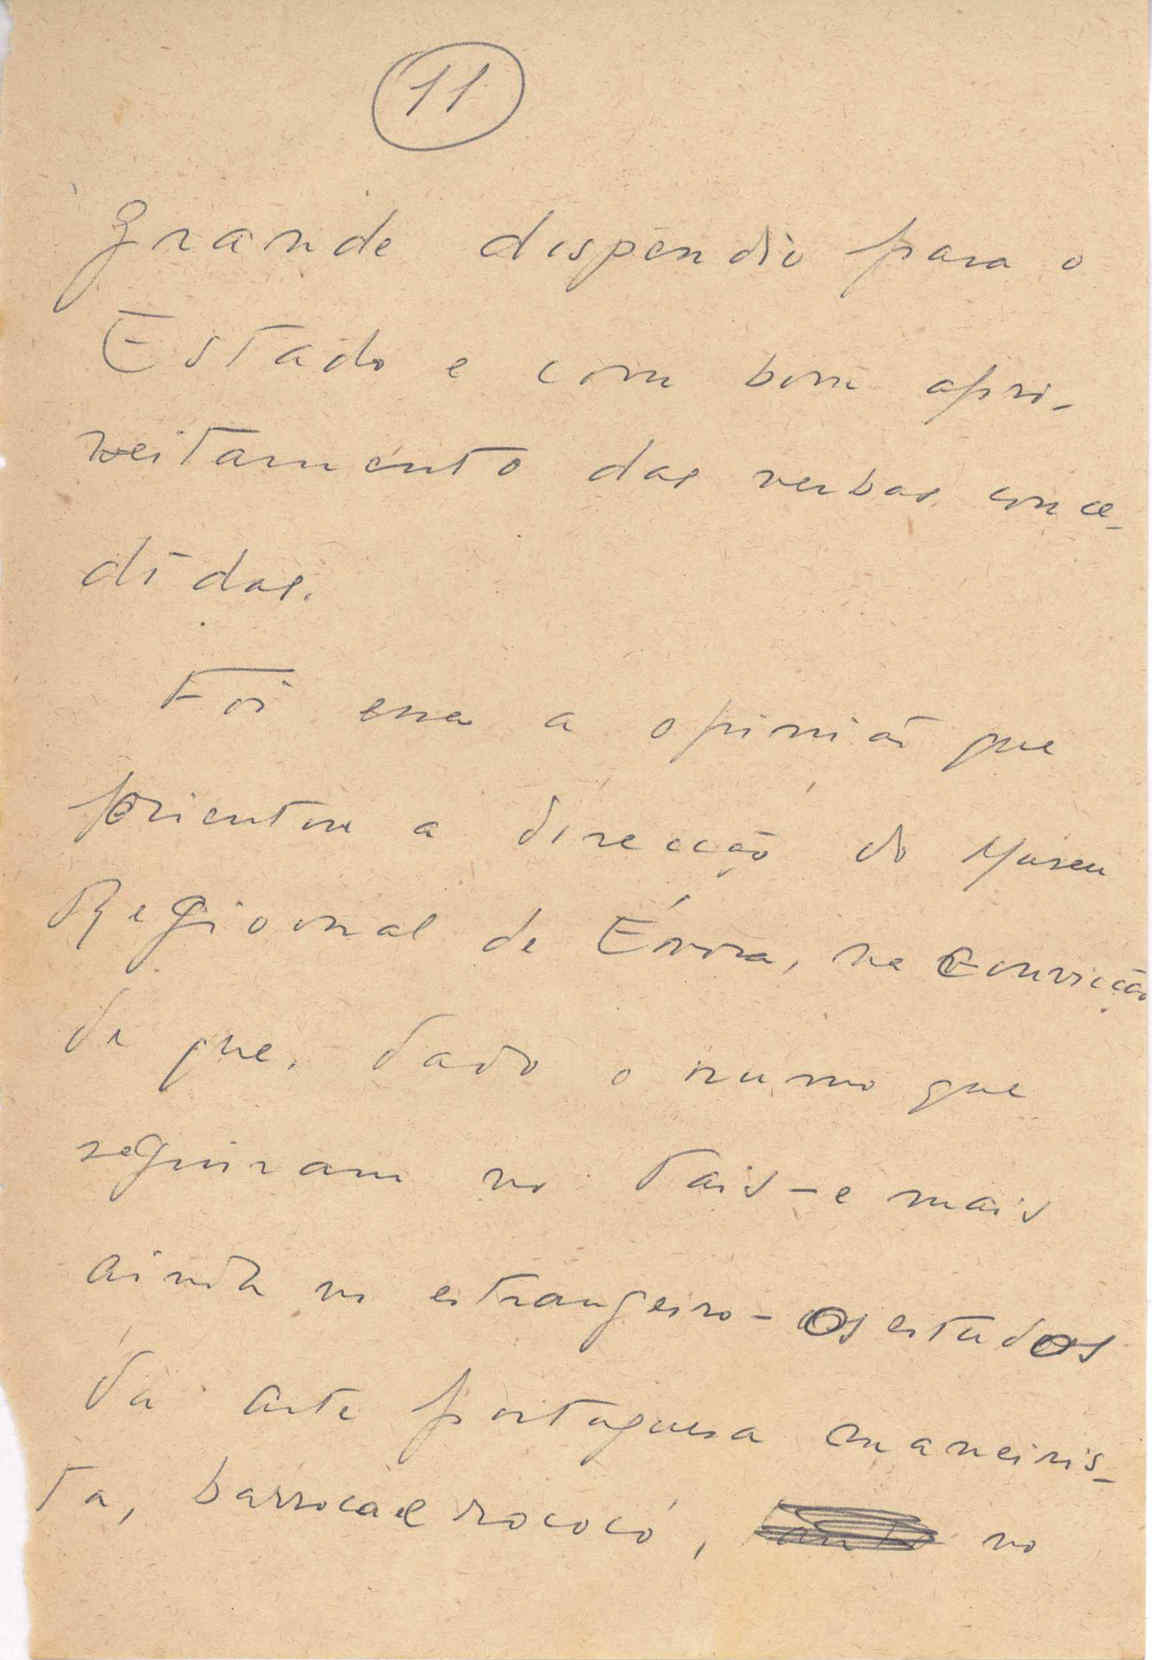 11
grande dispêndio para o
Estado e com bom apro-
veitamento das verbas conce-
didas.
Foi essa a opinião que
orientou a direcção do Museu
Regional de Évora, na convicção
de que, dado o rumo que
seguiram no País - e mais
ainda no estrangeiro - os estudos
da arte portuguesa maneiris-
ta, barroca e rococó, no